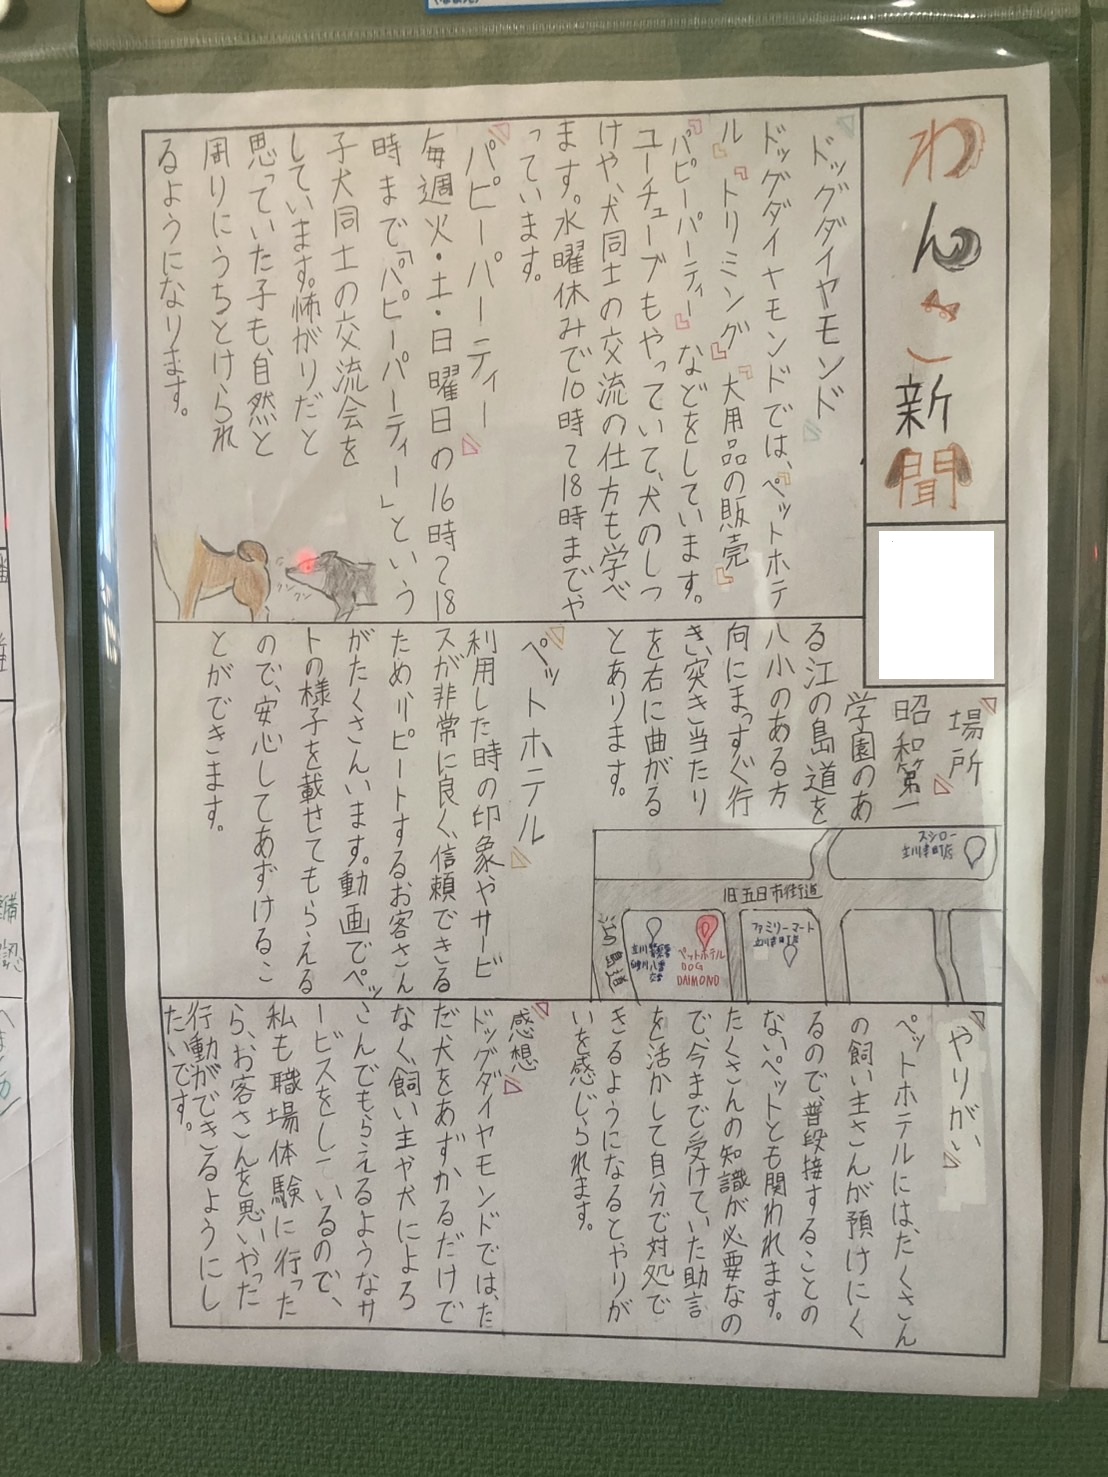 わんこ新聞
ドッグダイヤモンド
ドッグダイヤモンドでは、「ペットホテ
ル」「トリミング」「犬用品の販売」
「パピーパーティー」などをしています。
ユーチューブもやっていて、犬のしつ
けや、犬同士の交流の仕方も学べ
ます。水曜休みで10時~18時までや
っています。
パピーパーティー
毎週火・土・日曜日の16時~18
時まで「パピーパーティー」という
子犬同士の交流会を
しています。怖がりだと
思っていた子も、自然と
周りにうちとけられ
るようになります。
クンクン
場所
昭和第一
学園のあ
る江の島道を
八小のある方
向にまっすぐ行
き、突き当たり
を右に曲がる
とあります。
スシロー
立川幸町店
旧五日市街道
ファミリーマート
立川幸町店
ペットホテル
DOG
DAIMOND
立川警察署
砂川八番
交番
ペットホテル
利用した時の印象やサービ
スが非常に良く、信頼できる
ため、リピートするお客さん
がたくさんいます。動画でペッ
トの様子を載せてもらえる
ので、安心してあずけるこ
とができます。
やりがい
ペットホテルには、たくさん
の飼い主さんが預けにく
るので、普段接することの
ないペットとも関われます。
たくさんの知識が必要なの
で、今まで受けていた助言
を活かして自分で対処で
きるようになるとやりが
いを感じられます。
感想
ドッグダイヤモンドでは、た
だ犬をあずかるだけで
なく、飼い主や犬によろ
こんでもらえるようなサ
ービスをしているので、
私も職場体験に行った
ら、お客さんを思いやった
行動ができるようにし
たいです。